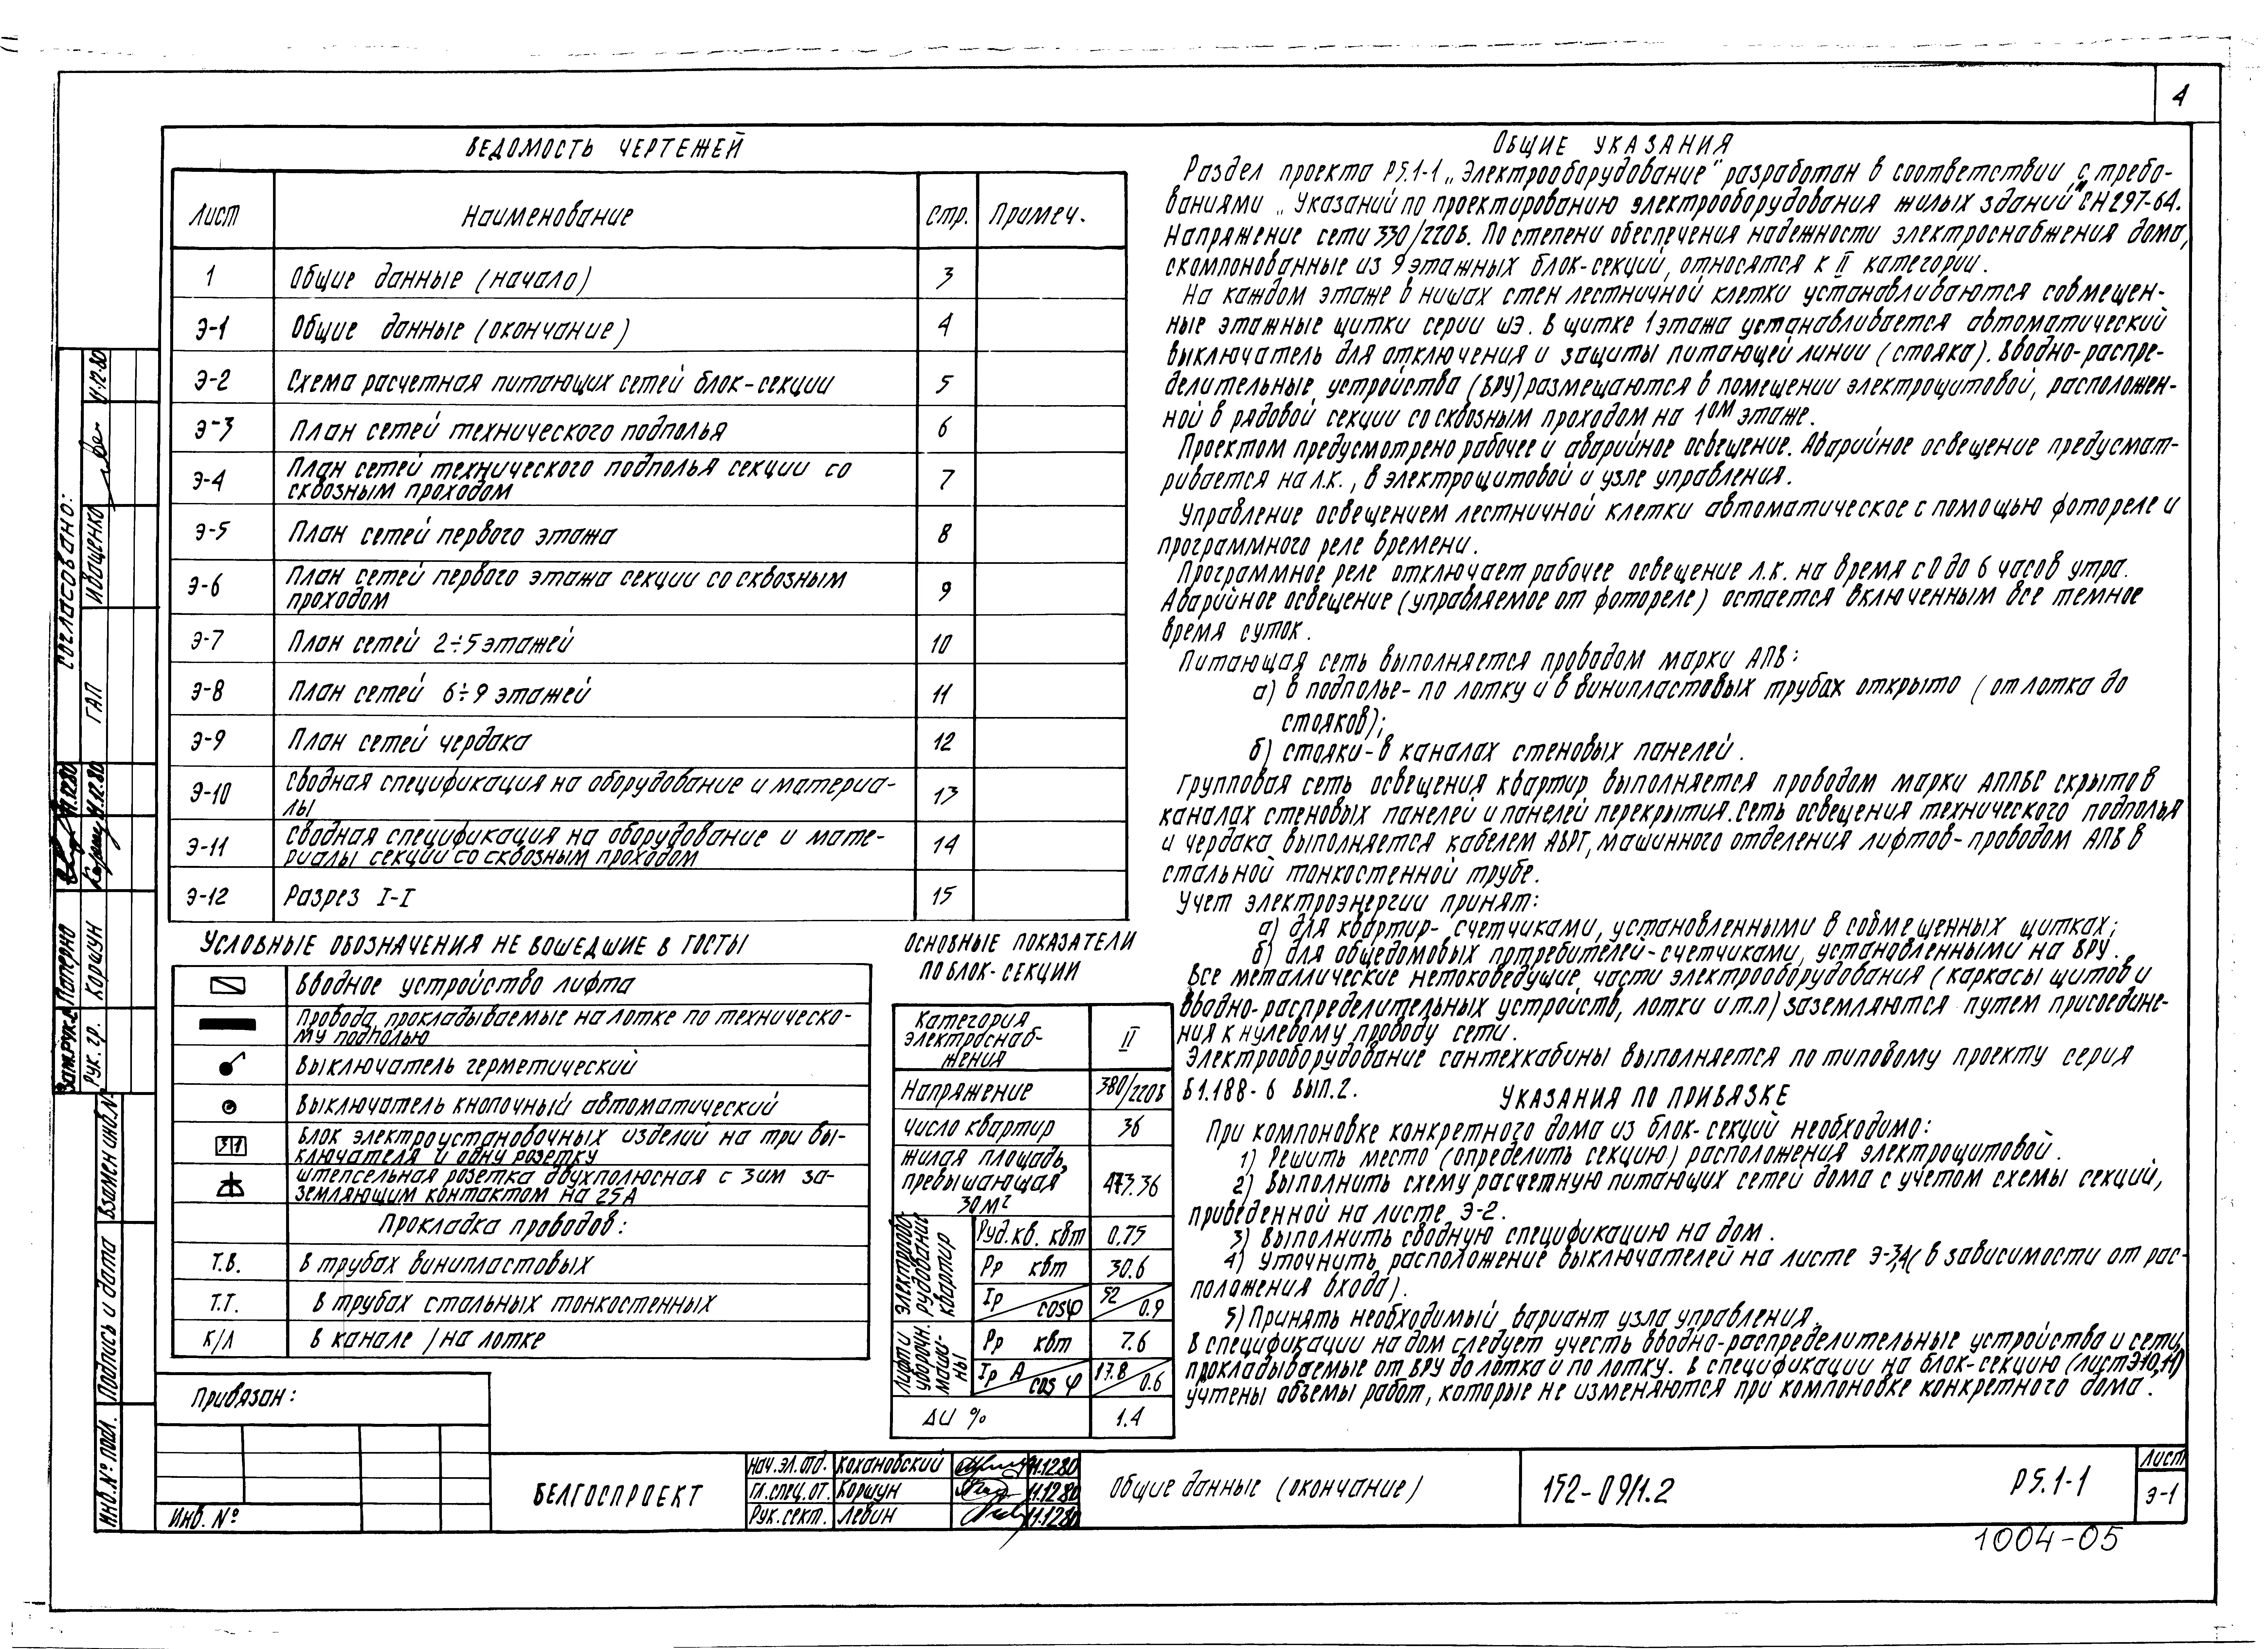 4
ВЕДОМОСТЬ ЧЕРТЕЖЕЙ
Лист Наименование Стр. Примеч.
1 Общие данные (начало) 3
Э-1 Общие данные (окончание) 4
Э-2 Схема расчетная питающих сетей блок-секции 5
Э-3 План сетей технического подполья 6
Э-4 План сетей технического подполья секции со
сквозным проходом 7
Э-5 План сетей первого этажа 8
Э-6 План сетей первого этажа секции со сквозным
проходом 9
Э-7 План сетей 2÷5 этажей 10
Э-8 План сетей 6÷9 этажей 11
Э-9 План сетей чердака 12
Э-10 Сводная спецификация на оборудование и материа-
лы 13
Э-11 Сводная спецификация на оборудование и мате-
риалы секции со сквозным проходом 14
Э-12 Разрез I-I 15
УСЛОВНЫЕ ОБОЗНАЧЕНИЯ НЕ ВОШЕДШИЕ В ГОСТЫ
Вводное устройство лифта
Провода, прокладываемые на лотке по техническо-
му подполью
Выключатель герметический
Выключатель кнопочный автоматический
Блок электроустановочных изделий на три вы-
ключателя и одну розетку
Штепсельная розетка двухполюсная с 3им за-
земляющим контактом на 25А
Прокладка проводов:
Т.В. в трубах винипластовых
Т.Т. в трубах стальных тонкостенных
К/Л в канале /на лотке
ОСНОВНЫЕ ПОКАЗАТЕЛИ
ПО БЛОК-СЕКЦИИ
Категория
электроснаб-
жения II
Напряжение 380/220в
Число квартир 36
Жилая площадь,
превышающая
30м² 473.36
Электрообо-
рудование
квартир
Руд.кв. квт 0.75
Рр квт 30.6
Iр cosφ 52 0.9
Лифт и
уборочн.
маши-
ны
Рр квт 7.6
Iр А cos φ 17.8 0.6
ΔU % 1.4
ОБЩИЕ УКАЗАНИЯ
Раздел проекта Р5.1-1 „Электрооборудование" разработан в соответствии с требо-
ваниями „Указаний по проектированию электрооборудования жилых зданий" СН 297-64.
Напряжение сети 330/220в. По степени обеспечения надежности электроснабжения дома,
скомпонованные из 9 этажных блок-секций, относятся к II категории.
На каждом этаже в нишах стен лестничной клетки устанавливаются совмещен-
ные этажные щитки серии ШЭ. В щитке 1 этажа устанавливается автоматический
выключатель для отключения и защиты питающей линии (стояка). Вводно-распре-
делительные устройства (ВРУ) размещаются в помещении электрощитовой, расположен-
ной в рядовой секции со сквозным проходом на 1ом этаже.
Проектом предусмотрено рабочее и аварийное освещение. Аварийное освещение предусмат-
ривается на л.к., в электрощитовой и узле управления.
Управление освещением лестничной клетки автоматическое с помощью фотореле и
программного реле времени.
Программное реле отключает рабочее освещение л.к. на время с 0 до 6 часов утра.
Аварийное освещение (управляемое от фотореле) остается включенным все темное
время суток.
Питающая сеть выполняется проводом марки АПВ:
а) в подполье - по лотку и в винипластовых трубах открыто (от лотка до
стояков);
б) стояки - в каналах стеновых панелей.
Групповая сеть освещения квартир выполняется проводом марки АППВС скрыто в
каналах стеновых панелей и панелей перекрытия. Сеть освещения технического подполья
и чердака выполняется кабелем АВРГ, машинного отделения лифтов - проводом АПВ в
стальной тонкостенной трубе.
Учет электроэнергии принят:
а) для квартир - счетчиками, установленными в совмещенных щитках;
б) для общедомовых потребителей - счетчиками, установленными на ВРУ.
Все металлические нетоковедущие части электрооборудования (каркасы щитов и
вводно-распределительных устройств, лотки и т.п) заземляются путем присоедине-
ния к нулевому проводу сети.
Электрооборудование сантехкабины выполняется по типовому проекту серия
Б1.188-6 вып.2.
УКАЗАНИЯ ПО ПРИВЯЗКЕ
При компоновке конкретного дома из блок-секций необходимо:
1) Решить место (определить секцию) расположения электрощитовой.
2) Выполнить схему расчетную питающих сетей дома с учетом схемы секций,
приведенной на листе Э-2.
3) Выполнить сводную спецификацию на дом.
4) Уточнить расположение выключателей на листе Э-3,4 (в зависимости от рас-
положения входа).
5) Принять необходимый вариант узла управления.
В спецификации на дом следует учесть вводно-распределительные устройства и сети,
прокладываемые от ВРУ до лотка и по лотку. В спецификации на блок-секцию (лист Э10,11)
учтены объемы работ, которые не изменяются при компоновке конкретного дома.
Согласовано:
ГАП Иващенко 11.12.80
Зам.рук. Паперно 11.12.80
Рук. гр. Коршун 11.12.80
Взамен инв.№
Подпись и дата
Инв.№ подл.
Привязан:
Инв. №
БЕЛГОСПРОЕКТ
Нач.эл.отд. Кохановский 11.12.80
Гл.спец.от. Коршун 11.12.80
Рук.сект. Левин 11.12.80
Общие данные (окончание)
152-09/1.2
Р5.1-1
Лист
Э-1
1004-05